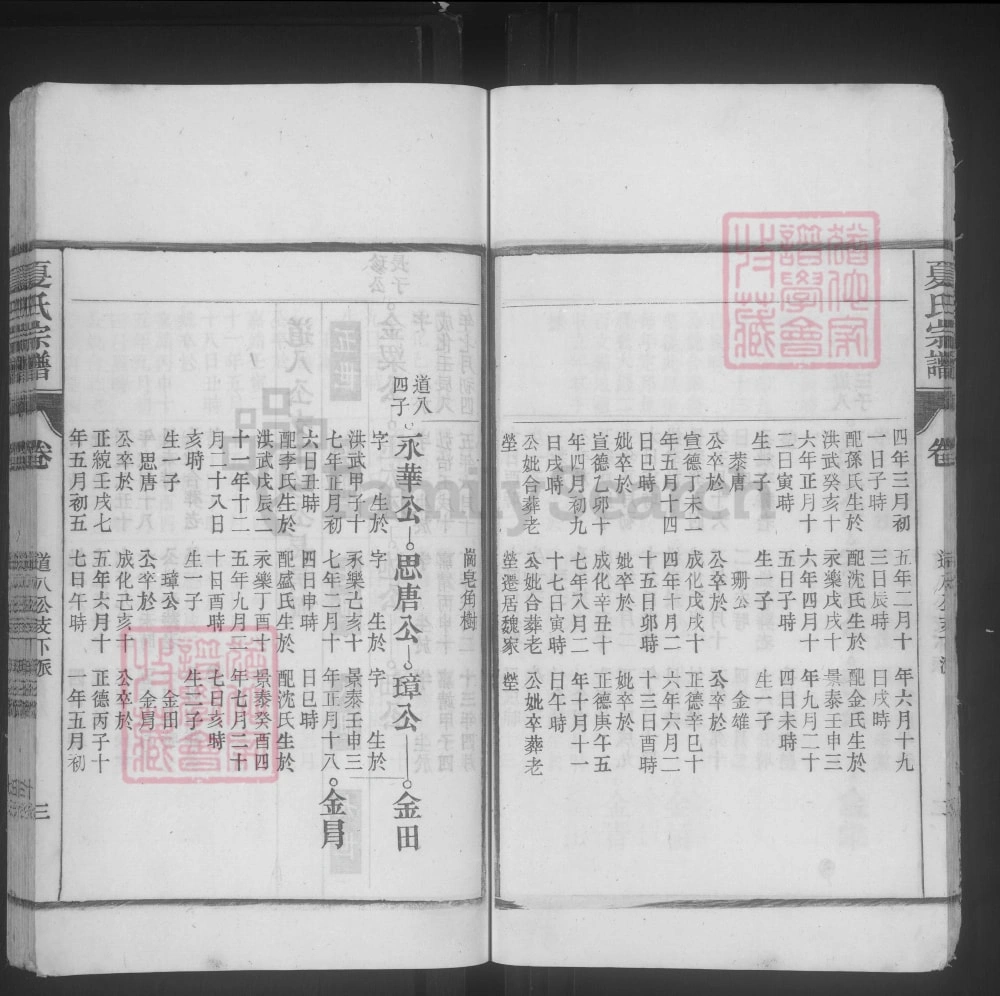 夏氏宗譜
卷
四年三月初
一日子時
配孫氏生於
洪武癸亥十
六年正月十
三日寅時
生一子
恭唐
公卒於
宣德丁未二
年五月十四
日巳時
妣卒於
宣德乙卯十
年四月初九
日戌時
公妣合葬老
塋
五年二月十
三日辰時
配沈氏生於
永樂戊戌十
六年四月十
五日子時
生一子
珊公
公卒於
成化戊戌十
四年十月二
十五日卯時
妣卒於
成化辛丑十
七年八月二
十七日寅時
公妣合葬老
塋遷居魏家
年六月十九
日戌時
配金氏生於
景泰壬申三
年九月二十
四日未時
生一子
金雄
公卒於
正德辛巳十
六年六月二
十三日酉時
妣卒於
正德庚午五
年十月十一
日午時
公妣卒葬老
塋
崗皂角樹
道八
四子
永華公 思唐公 璋公 金田
金昌
字 生於
洪武甲子十
七年正月初
六日丑時
配李氏生於
洪武戊辰二
十一年十二
月二十八日
亥時
生一子
思唐
公卒於
正統壬戌七
年五月初五
字 生於
永樂己亥十
七年二月十
四日申時
配盛氏生於
永樂丁酉十
五年九月二
十日酉時
生一子
璋公
公卒於
成化己亥十
五年六月十
七日午時
字 生於
景泰壬申三
年正月十八
日巳時
配沈氏生於
景泰癸酉四
年七月二十
七日亥時
生二子
金田
金昌
公卒於
正德丙子十
一年五月初
夏氏宗譜
卷
道八公支下派
三
FamilySearch